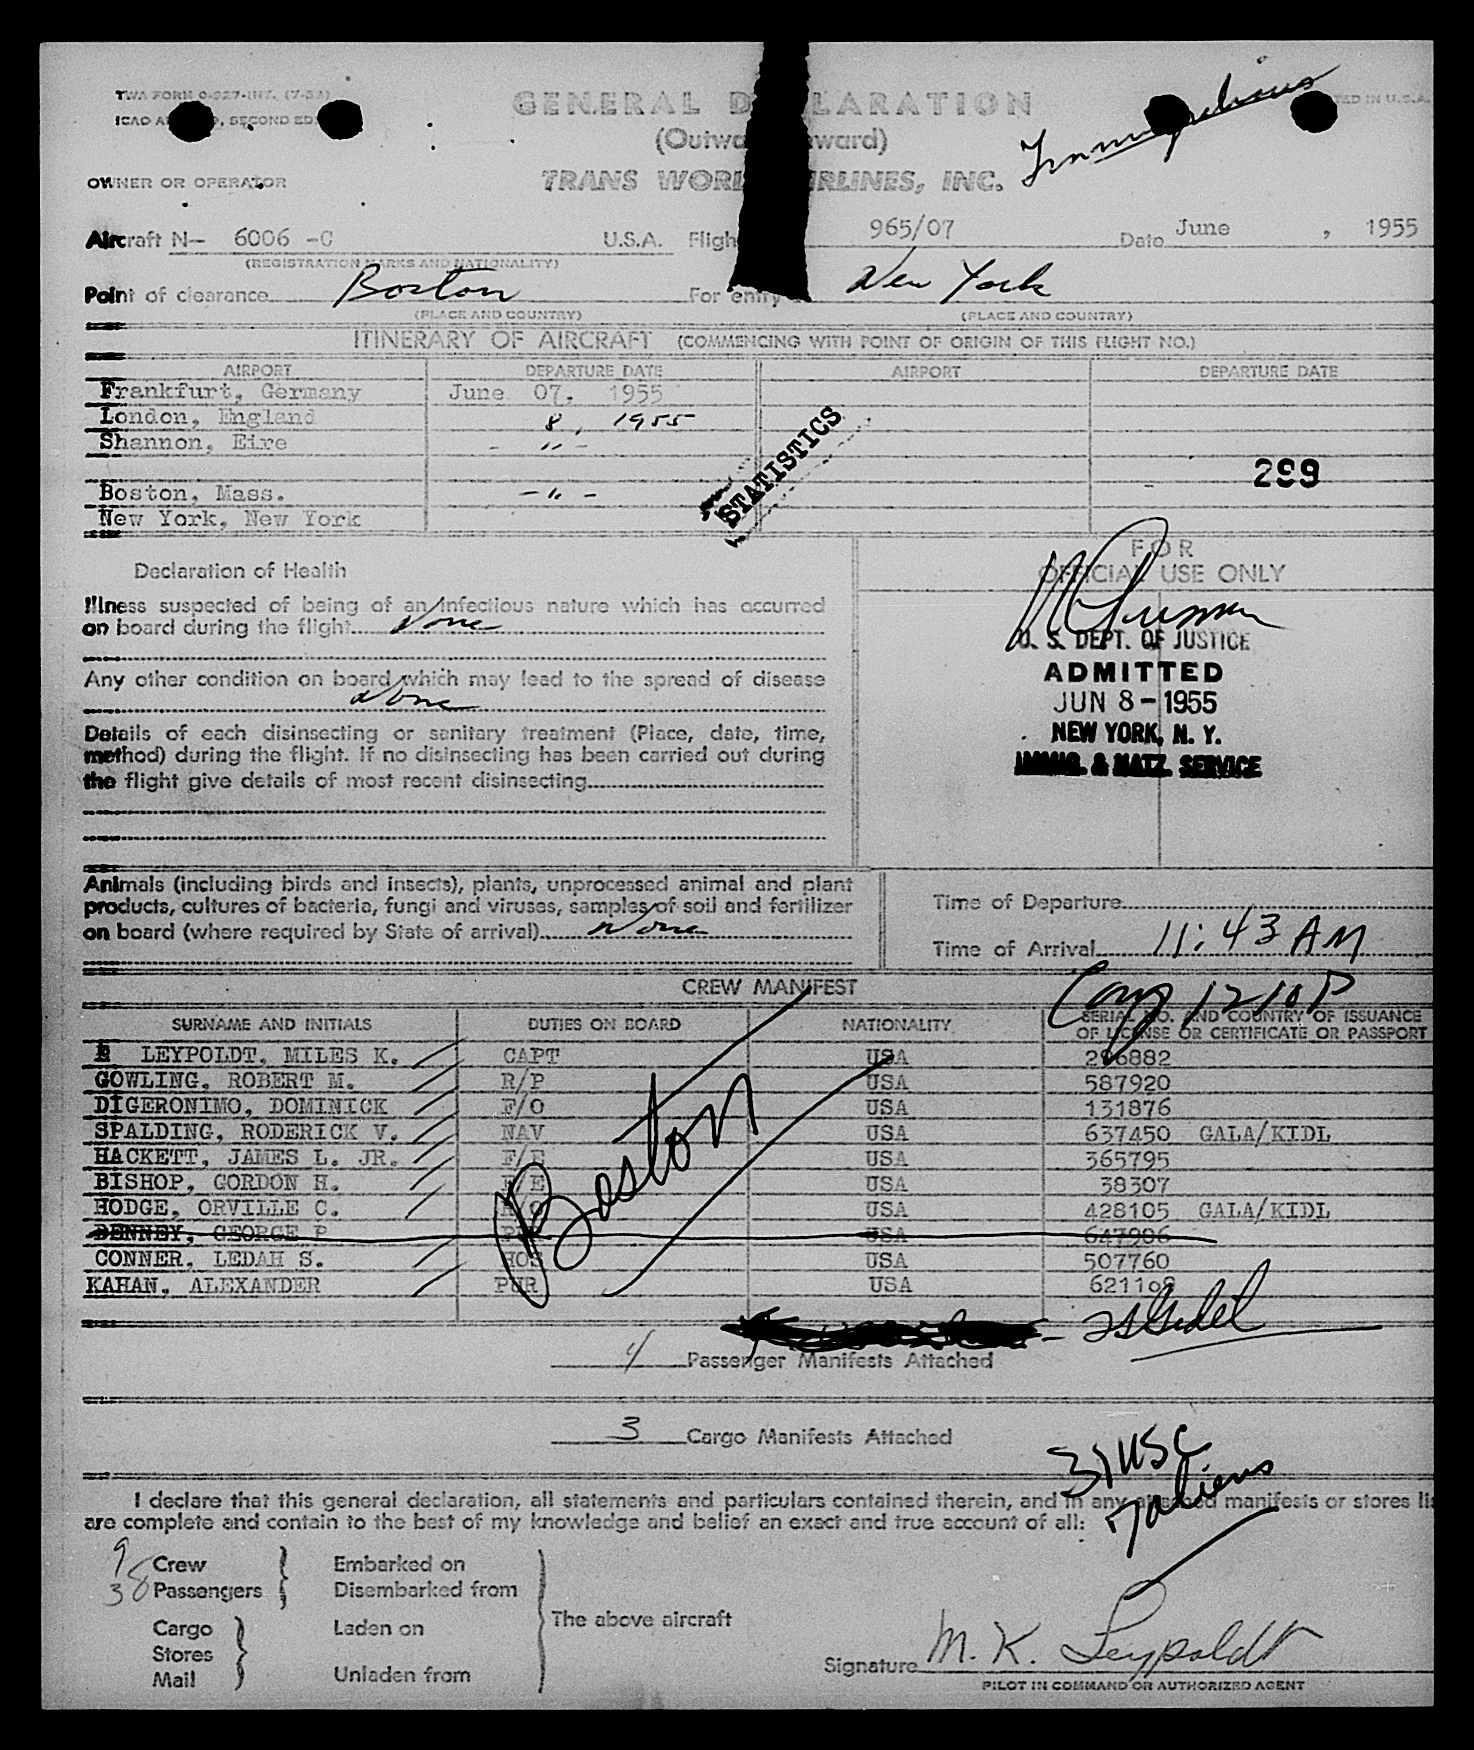 TWA FORM O-927-INT. (7-54)
ICAO A , SECOND ED.
GENERAL D LARATION
(Outwa ward)
Immigrations
TED IN U.S.A.
OWNER OR OPERATOR TRANS WORL IRLINES, INC.
Aircraft N- 6006 -C U.S.A. Fligh 965/07 Date June , 1955
(REGISTRATION MARKS AND NATIONALITY)
Point of clearance Boston For entry New York
(PLACE AND COUNTRY) (PLACE AND COUNTRY)
ITINERARY OF AIRCRAFT (COMMENCING WITH POINT OF ORIGIN OF THIS FLIGHT NO.)
AIRPORT DEPARTURE DATE AIRPORT DEPARTURE DATE
Frankfurt, Germany June 07, 1955
London, England 8, 1955
Shannon, Eire - " -
STATISTICS
299
Boston, Mass. - " -
New York, New York
Declaration of Health
FOR
OFFICIAL USE ONLY
Illness suspected of being of an infectious nature which has occurred
on board during the flight None
Any other condition on board which may lead to the spread of disease
None
U. S. DEPT. OF JUSTICE
ADMITTED
JUN 8 - 1955
NEW YORK, N. Y.
IMMIG. & NATZ. SERVICE
Details of each disinsecting or sanitary treatment (Place, date, time,
method) during the flight. If no disinsecting has been carried out during
the flight give details of most recent disinsecting
Animals (including birds and insects), plants, unprocessed animal and plant
products, cultures of bacteria, fungi and viruses, samples of soil and fertilizer
on board (where required by State of arrival) None
Time of Departure
Time of Arrival 11:43 AM
1210 P
CREW MANIFEST
SURNAME AND INITIALS DUTIES ON BOARD NATIONALITY SERIAL NO. AND COUNTRY OF ISSUANCE
OF LICENSE OR CERTIFICATE OR PASSPORT
LEYPOLDT, MILES K. CAPT USA 296882
GOWLING, ROBERT M. R/P USA 587920
DIGERONIMO, DOMINICK F/O USA 131876
SPALDING, RODERICK V. NAV USA 637450 GALA/KIDL
HACKETT, JAMES L. JR. F/E USA 365795
BISHOP, GORDON H. F/E USA 38307
HODGE, ORVILLE C. R/O USA 428105 GALA/KIDL
DENNEY, GEORGE P PUR USA 647906
CONNER, LEDAH S. HOS USA 507760
KAHAN, ALEXANDER PUR USA 621108
Boston
4 Passenger Manifests Attached
3 Cargo Manifests Attached
31 USC
7 aliens
I declare that this general declaration, all statements and particulars contained therein, and in any attached manifests or stores li
are complete and contain to the best of my knowledge and belief an exact and true account of all:
9 Crew Embarked on
38 Passengers Disembarked from
The above aircraft
Cargo Laden on
Stores
Mail Unladen from
Signature M. K. Leypoldt
PILOT IN COMMAND OR AUTHORIZED AGENT